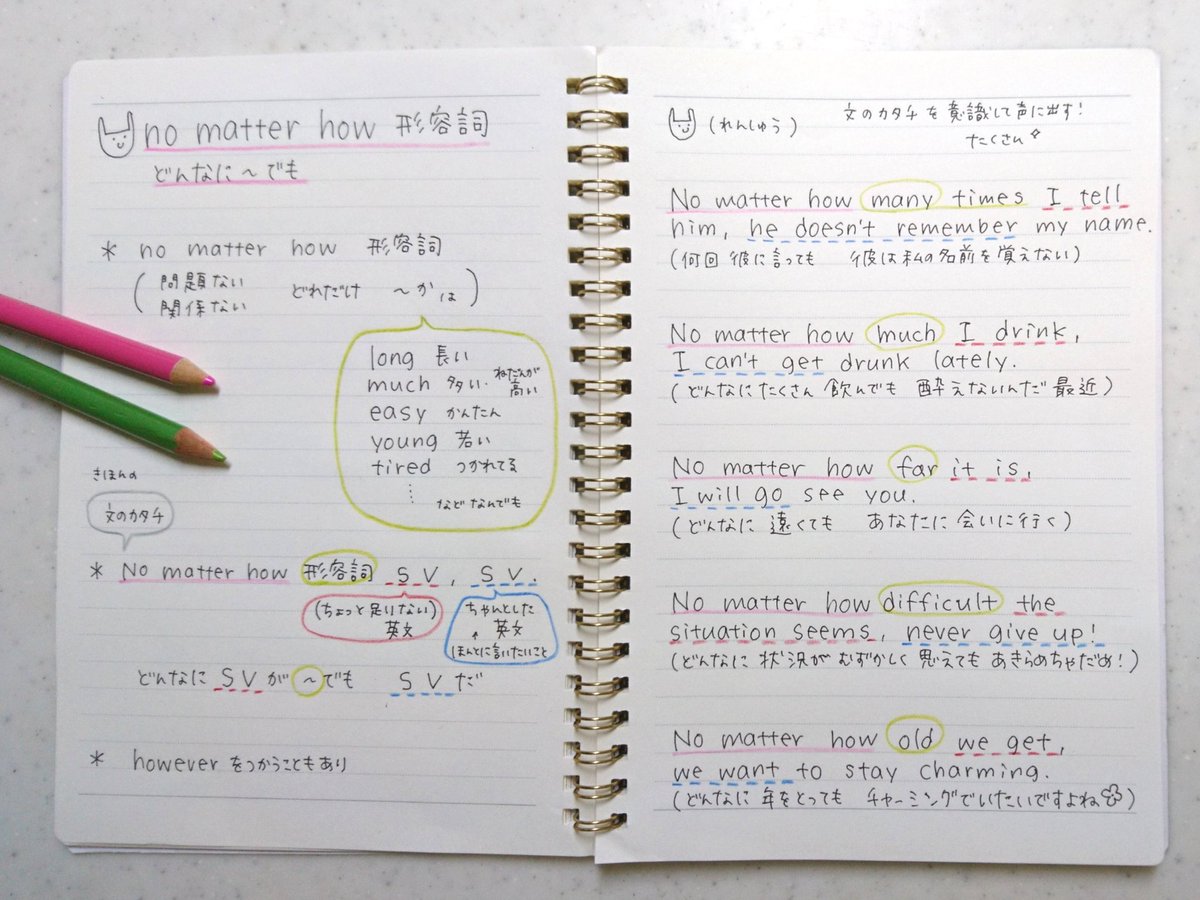 no matter how 形容詞
どんなに〜でも
* no matter how 形容詞
(問題ない 関係ない どれだけ 〜かは)
long 長い
much 多い・ねだんが高い
easy かんたん
young 若い
tired つかれてる
⋮
などなんでも
きほんの
文のカタチ
* No matter how 形容詞 S V, S V.
(ちょっと足りない)
英文
ちゃんとした
英文
↑
ほんとに言いたいこと
どんなに S V が 〜でも S V だ
* however をつかうこともあり
(れんしゅう)
文のカタチを意識して声に出す!
たくさん
No matter how many times I tell
him, he doesn't remember my name.
(何回 彼に言っても 彼は私の名前を覚えない)
No matter how much I drink,
I can't get drunk lately.
(どんなにたくさん 飲んでも 酔えないんだ 最近)
No matter how far it is,
I will go see you.
(どんなに 遠くても あなたに会いに行く)
No matter how difficult the
situation seems, never give up!
(どんなに 状況が むずかしく 思えても あきらめちゃだめ!)
No matter how old we get,
we want to stay charming.
(どんなに 年をとっても チャーミングでいたいですよね)